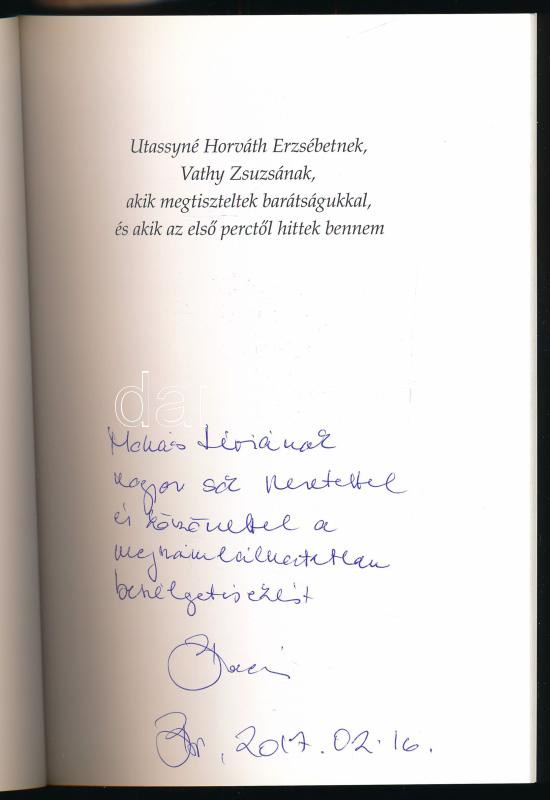 Utassyné Horváth Erzsébetnek,
Vathy Zsuzsának,
akik megtiszteltek barátságukkal,
és akik az első perctől hittek bennem
Mohás Líviának
nagyon sok szeretettel
és köszönettel a
megszámlálhatatlan
beszélgetésekért
2017.02.16.